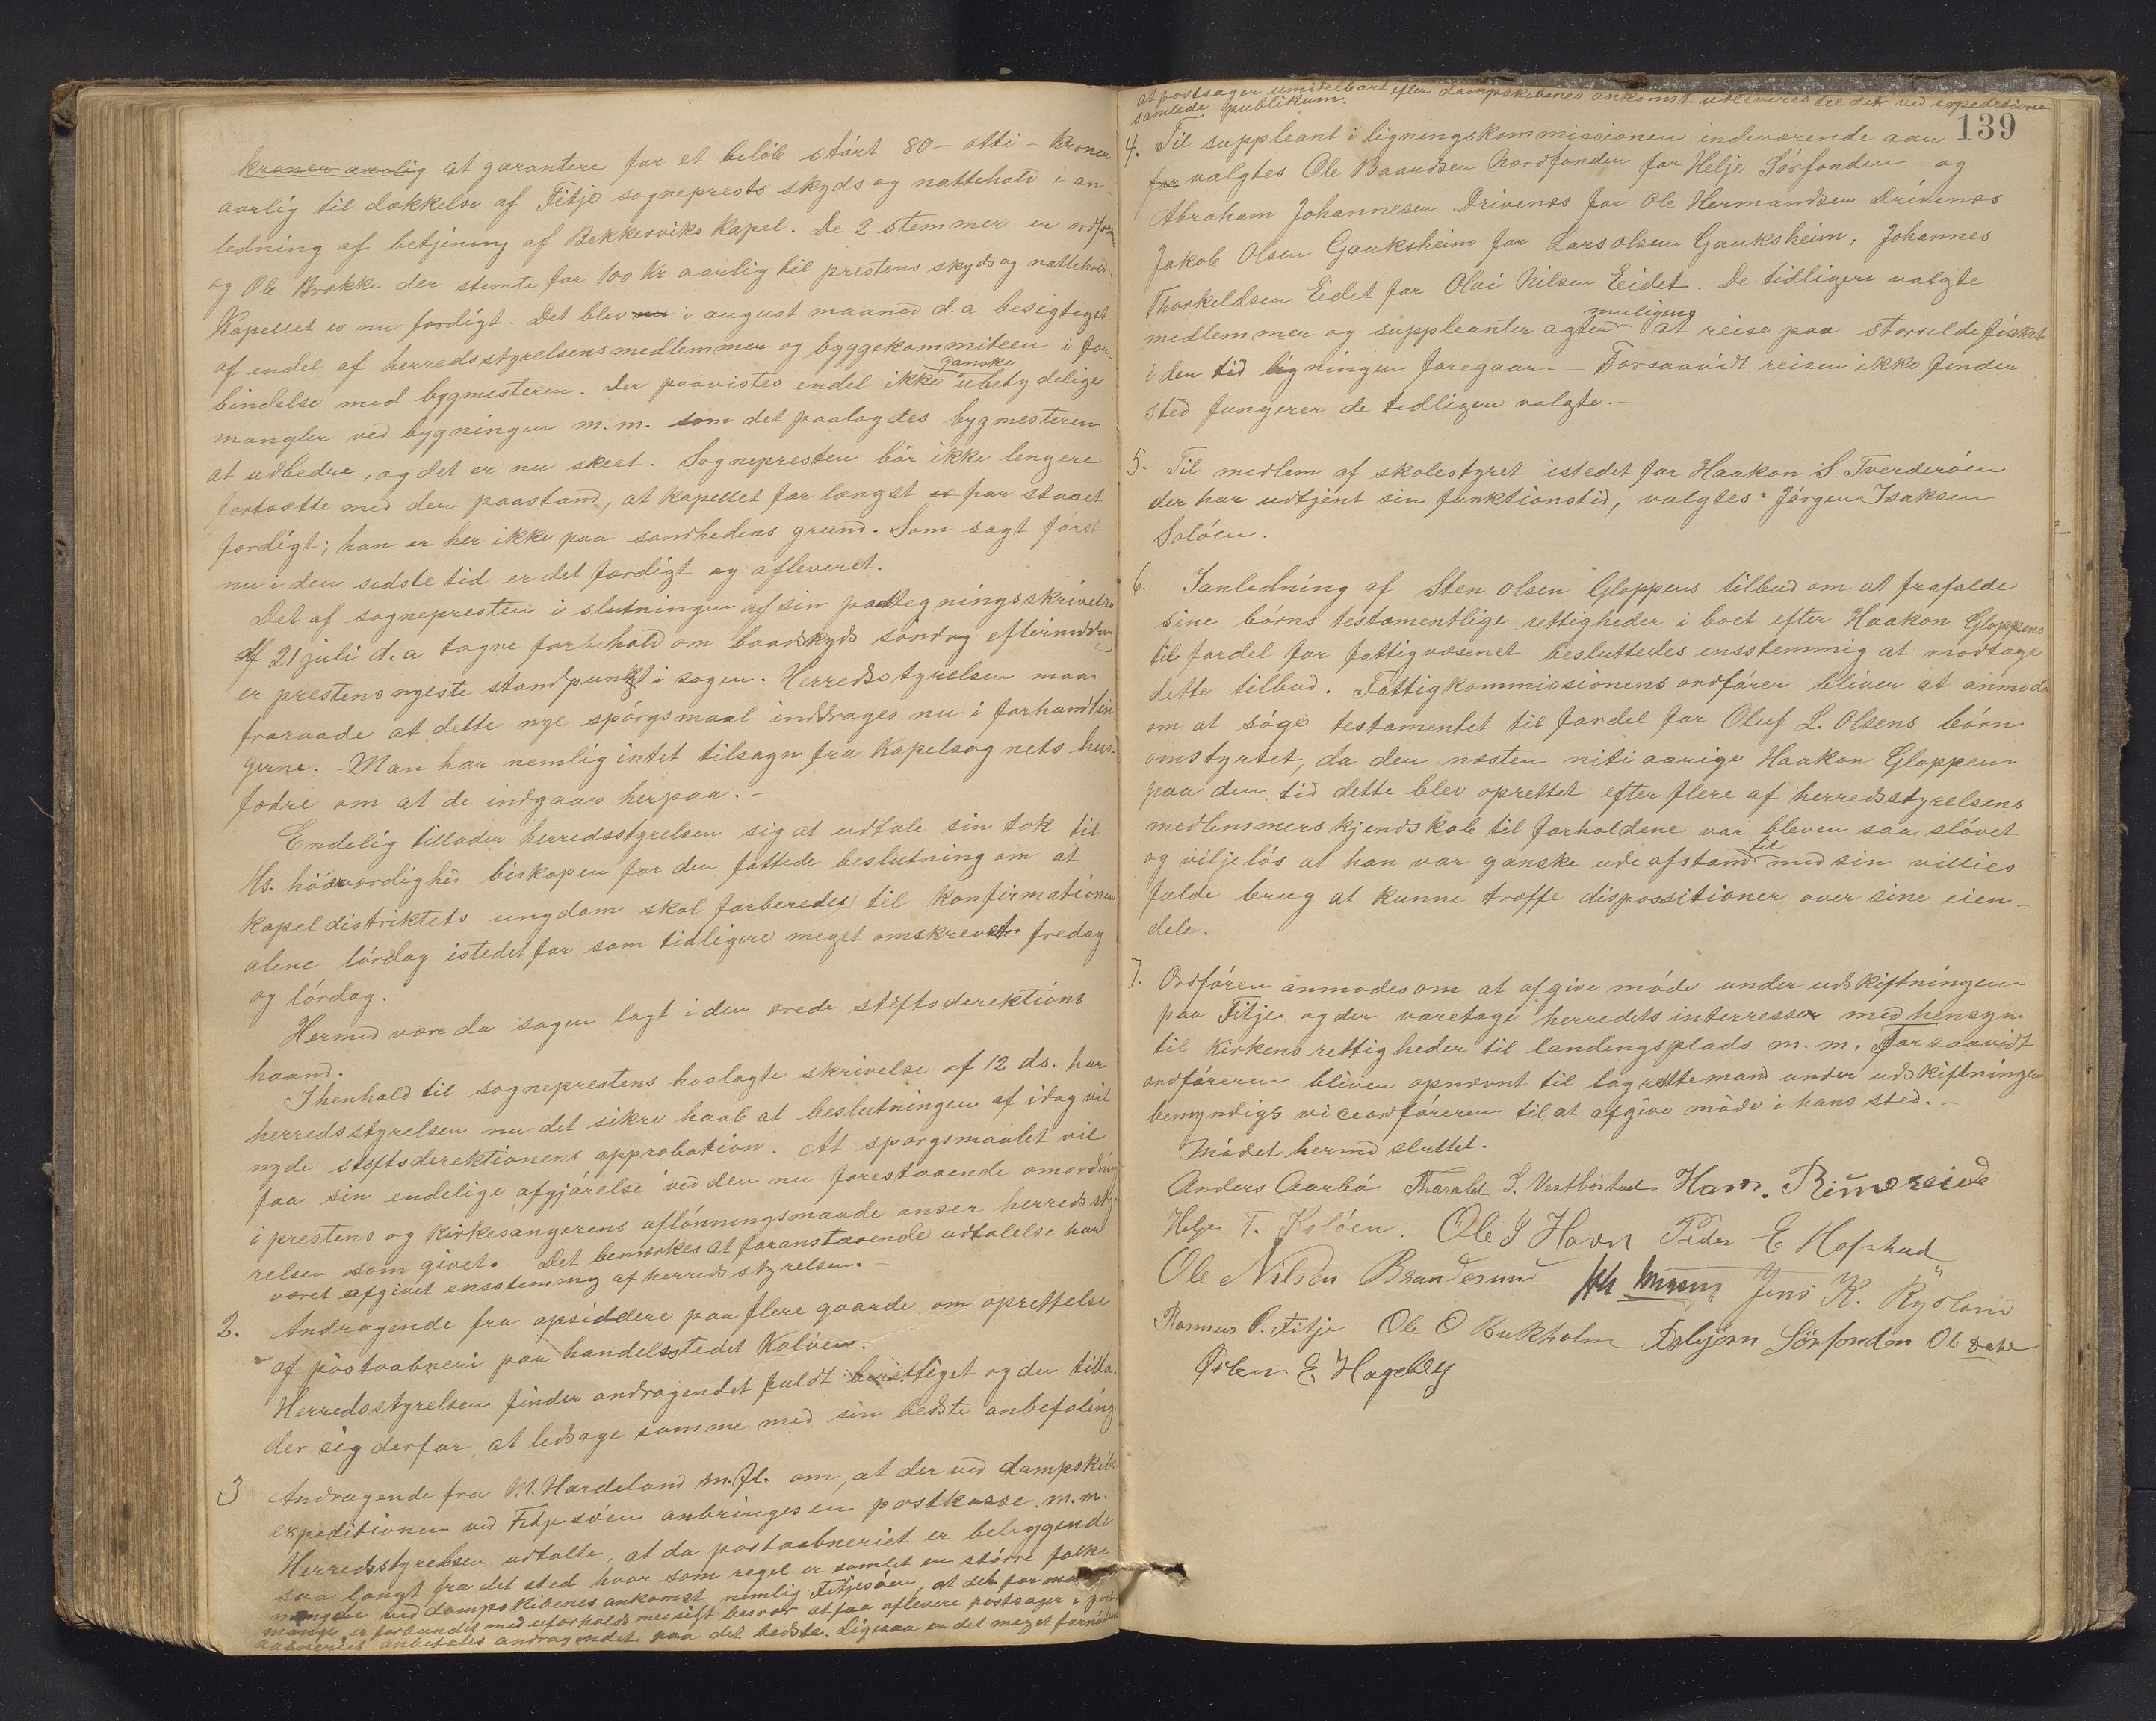 kroner aarlig at garantere for et beløb stórt 80 - otti - kroner
aarlig til dækkelse af Fitje sogneprests skyds og nattehold i an-
ledning af betjening af Bekkerviks kapel. De 2 stemmer er ordfør
og Ole Brække der stemte for 100 Kr aarlig til prestens skyds og nattehold.
Kapellet er nu færdigt. Det blev nu i august maaned d.a besigtiget
af endel af herredsstyrelsens medlemmer og byggekommiteen i for-
bindelse med bygmesteren. Der paavistes endel ikke ganske ubetydelige
mangler ved bygningen m.m. som det paalagdes bygmesteren
at udbedre, og det er nu skeet. Sognepresten bør ikke lengere
fortsætte med den paastand, at kapellet for længst er har staaet
færdigt; han er her ikke paa sandhedens grund. Som sagt fórst
nu i den sidste tid er det færdigt og afleveret.
Det af sognepresten i slutningen af sin paategningsskrivelse
af 21 juli d.a tagne forbehold om baadskyds sóndag eftermiddag
er prestens nyeste standpunkt i sagen. Herredsstyrelsen maa
fraraade at dette nye spórgsmaal inddrages nu i forhandlin-
gerne. - Man har nemlig intet tilsagn fra Kapelsognets hus-
fædre om at de indgaar herpaa. -
Endelig tillader herredsstyrelsen sig at udtale sin tak til
Hs. hóiærværdighed biskopen for den fattede beslutning om at
kapeldistriktets ungdom skal forberedes til konfirmationen
alene lórdag istedetfor som tidligere meget omskrevet fredag
og lórdag.
Hermed være da sagen lagt i den ærede stiftsdirektions
haand.
I henhold til sogneprestens hoslagte skrivelse af 12 ds. har
herredsstyrelsen nu det sikre haab at beslutningen af idag vil
nyde stiftsdirektionens approbation. At spørgsmaalet vil
faa sin endelige afgjórelse ved den nu forestaaende omordning
i prestens og kirkesangerens aflónningsmaade anser herredssty-
relsen som givet. - Det bemærkes at foranstaaende udtalelse har
været afgivet ensstemmig af herredsstyrelsen. -
2. Andragende fra opsiddere paa flere gaarde om oprettelse
af postaabneri paa handelsstedet Kolóen.
Herredsstyrelsen finder andragendet fuldt berettiget og den tilla-
der sig derfor, at ledsage samme med sin bedste anbefaling
3 Andragende fra M. Hardeland m.fl. om, at der ved dampskibs-
expeditionen ved Fitjesóen anbringes en postkasse m.m.
Herredsstyrelsen udtalte, at da postaabneriet er beliggende
saa langt fra det sted hvor som regel er samlet en stórre folke
mængde ved dampskibenes ankomst nemlig Fitjesóen, at det for
mange er forbundet med uforholdsmessigt besvær at faa aflevere postsager i post-
aabneriet anbefales andragendet paa det bedste. Ligesaa er det meget fornódent
139
at postsager umiddelbart efter dampskibenes ankomst udleveres til det ved expeditionen
samlede publikum.
4. Til suppleant i ligningskommissionen indeværende aar
for valgtes Ole Baardsen Nordfonden for Helje Sórfonden og
Abraham Johannesen Drivenes for Ole Hermandsen Drivenes
Jakob Olsen Gauksheim for Lars olsen Gauksheim, Johannes
Thorkeldsen Eidet for Olai Nilsen Eidet. De tidligere valgte
medlemmer og suppleanter agter muligens at reise paa storsildefisket
i den tid ligningen foregaar. - Forsaavidt reisen ikke finder
sted fungerer de tidligere valgte. -
5. Til medlem af skolestyret istedet for Haakon S. Tverderóen
der har udtjent sin funktionstid, valgtes Jórgen Isaksen
Solóen.
6. I anledning af Sten Olsen Gloppens tilbud om at frafalde
sine bórns testamentlige rettigheder i boet efter Haakon Gloppens
til fordel for fattigvæsenet besluttedes ensstemmig at modtage
dette tilbud. Fattigkommissionens ordfórer bliver at anmode
om at sóge testamentet til fordel for Oluf L. Olsens bórn
omstyrtet, da den næsten niti aarige Haakon Gloppen
paa den tid dette blev oprettet efter flere af herredsstyrelsens
medlemmers kjendskab til forholdene var bleven saa slóvet
og viljelós at han var ganske ude afstand til med sin villies
fulde brug at kunne træffe dispossitioner over sine eien-
dele.
7. Ordfóren anmodes om at afgive móde under udskiftningen
paa Fitje og der varetage herredets interresser med hensyn
til kirkens rettigheder til landingsplads m.m. Forsaavidt
ordfóreren bliver opnævnt til lagrettemand under udskiftningen
bemyndigs viceordfóreren til at afgive móde i hans sted. -
Módet hermed sluttet.
Anders Aarbó Tharald S. Vestbóstad Hans. Rimereide
Helje T. Kolóen. Ole S Havn Peder E Hafstad
Ole Nilsen Brandesund Jens K. Rydland
Rasmus P. Fitje Ole O Bukholm Asbjórn Sórfonden Ole Dale
Ósten E. Hageberg